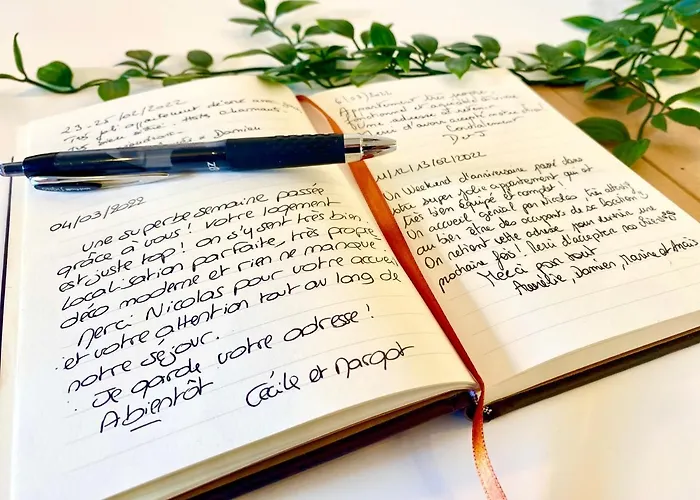 23.25/02/2022
Très joli appartement
04/03/2022
une superbe semaine passée
grâce à vous! Votre logement
est juste top! On s'y sent très bien.
Localisation parfaite, très propre
déco moderne et rien ne manque.
Merci Nicolas pour votre accueil
et votre attention tout au long de
notre séjour.
Je garde votre adresse!
Abientôt
Cécile et Margot
Appartement très
Une adresse à
Merci d'avoir accepté notre
Cordialement
11/12/13/02/2022
Un Weekend d'anniversaire passé dans
votre super jolie appartement qui est
très bien équipé et complet!
Un accueil génial par Nicolas, très attentif
au bien être des occupants de sa location
On retient cette adresse pour revenir une
prochaine fois! Merci d'accepter nos
Merci pour tout
Aurélie, Damien, Marine et Anaïs